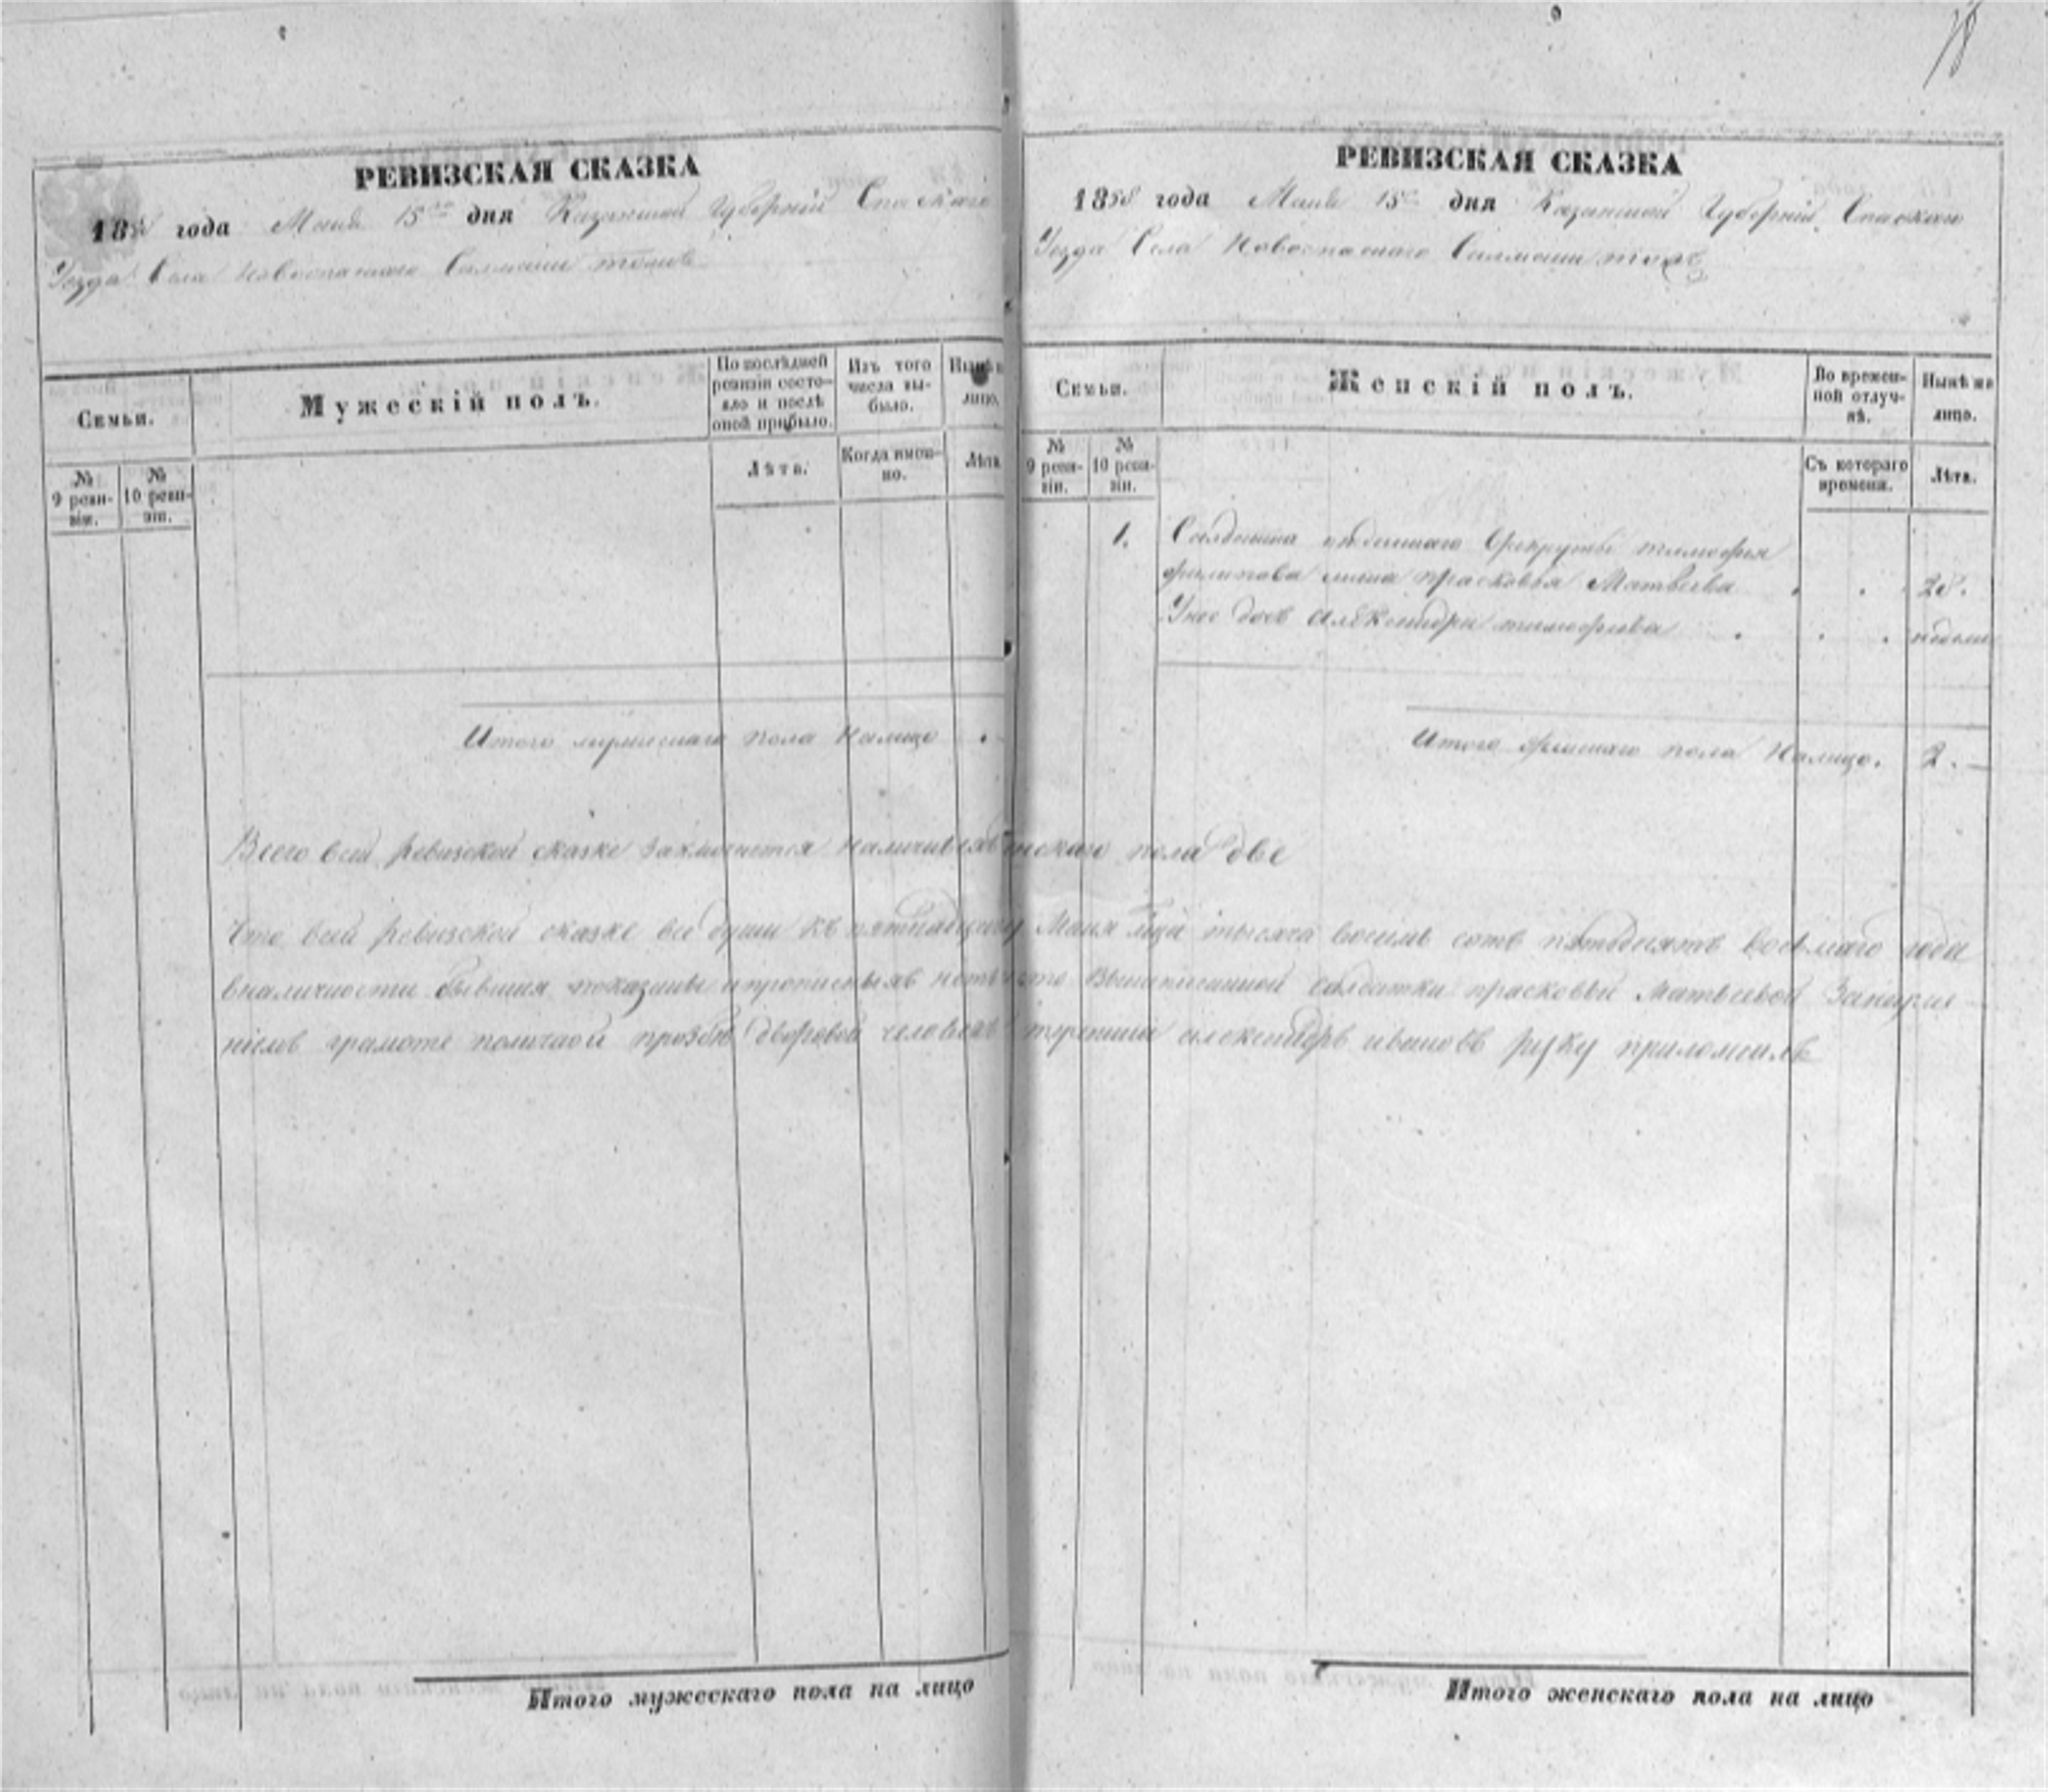 78
РЕВИЗСКАЯ СКАЗКА
18 года Маия 15го дня Казанской Губерній Спаскаго
Уезда Села Новоспаскаго Салманы тожъ
Семьи.
Мужескій полъ.
По послѣдней ревизіи состояло и послѣ оной прибыло.
Изъ того числа выбыло.
Нынѣ на лицо.
№ 9 ревизіи.
№ 10 ревизіи.
Лѣта.
Когда именно.
Лѣта
Итого мужескаго пола Налицо
РЕВИЗСКАЯ СКАЗКА
1858 года Маия 15го дня Казанской Губерній Спаскаго
Уезда Села Новоспаскаго Салманы тожъ
Семьи.
Женскій полъ.
Во временной отлучкѣ.
Нынѣ на лицо.
№ 9 ревизіи.
№ 10 ревизіи.
Съ котораго времени.
Лѣта.
1. Салдатка отданнаго Врекруты тимофея
филипова жена прасковья Матвеева 28.
Унее дочь александра тимофеева
Итого женскаго пола Налицо. 2.
Всего всей ревизской сказке заключается наличныхъ женскаго пола две
Что всей ревизской сказке все души къ пятнадцатому Маия тысяча восемь сотъ пятьдесятъ восьмаго года
вналичности бывшия показаны ипрописныхъ нетъ вышеписанной салдатки прасковьи Матвеевой
грамоте поличной прозбе дворовой человекъ александръ ивановъ руку приложилъ
Итого мужескаго пола на лицо
Итого женскаго пола на лицо